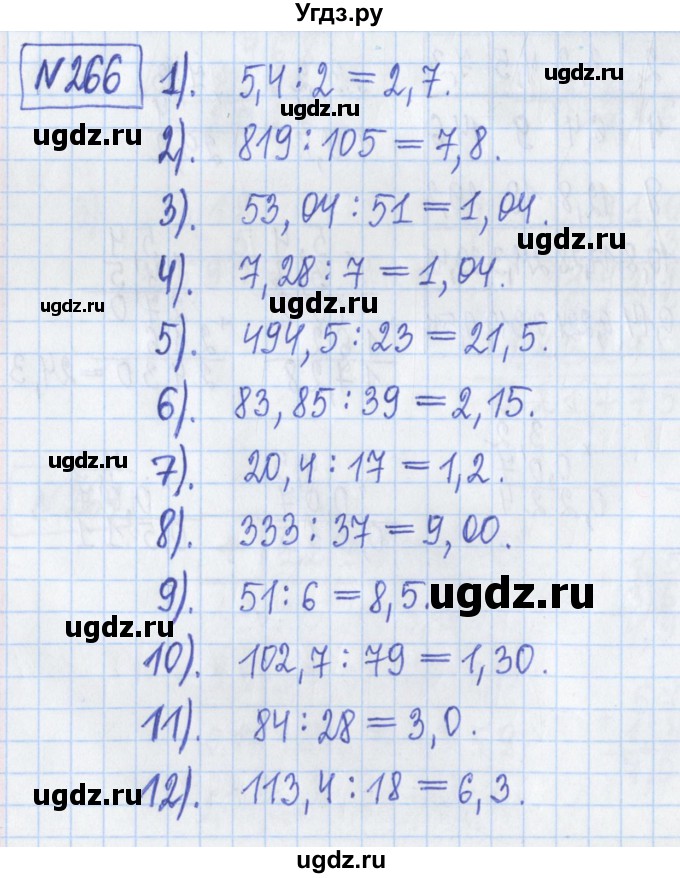 Угдз.ру
№266 1). 5,4 : 2 = 2,7.
ugdz.ru
ugdz.ru
ugdz.ru
2). 819 : 105 = 7,8.
3). 53,04 : 51 = 1,04.
ugdz.ru
4). 7,28 : 7 = 1,04.
ugdz.ru
ugdz.ru
5). 494,5 : 23 = 21,5.
6). 83,85 : 39 = 2,15.
ugdz.ru
7). 20,4 : 17 = 1,2.
8). 333 : 37 = 9,00.
ugdz.ru
9). 51 : 6 = 8,5.
ugdz.ru
ugdz.ru
10). 102,7 : 79 = 1,30.
11). 84 : 28 = 3,0.
ugdz.ru
12). 113,4 : 18 = 6,3.
ugdz.ru
ugdz.ru